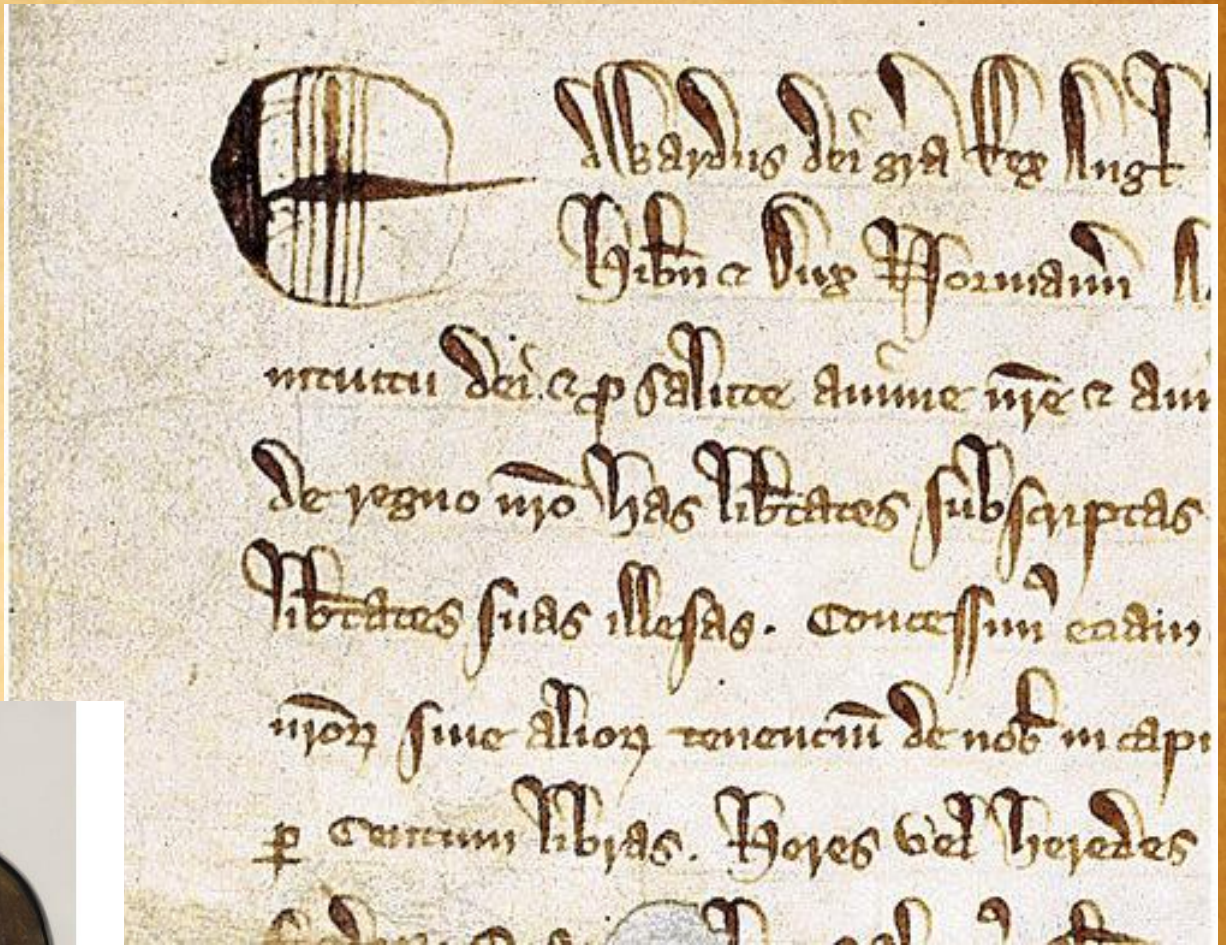 Edwardus dei gr̃a Rex Angł
Hib̃n ⁊ Dux Normann̄
intuitu dei ⁊ ꝓ salute anime nr̄e ⁊ ani
de regno nr̄o has lib̃tates subscriptas
lib̃tates suas illesas. Concessim᷒ eciam
nr̄oꝝ siue alioꝝ tenenciū de nob̃ in capi
ꝑ Centum libras. Heres vel heredes